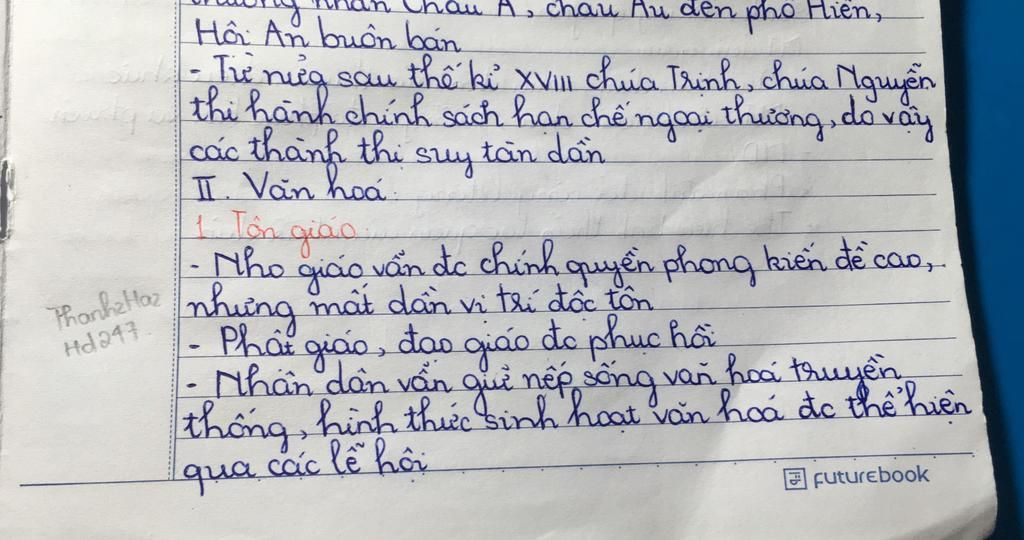 thương nhân Châu Á, châu Âu đến phố Hiến,
Hội An buôn bán
- Từ nửa sau thế kỉ XVIII chúa Trịnh, chúa Nguyễn
thi hành chính sách hạn chế ngoại thương, do vậy
các thành thị suy tàn dần
II. Văn hoá:
1. Tôn giáo:
- Nho giáo vẫn đc chính quyền phong kiến đề cao,
nhưng mất dần vị trí độc tôn
- Phật giáo, đạo giáo đc phục hồi
- Nhân dân vẫn giữ nếp sống văn hoá truyền
thống, hình thức sinh hoạt văn hoá đc thể hiện
qua các lễ hội
ThanhzHaz
Hd247
FUTUREBOOK